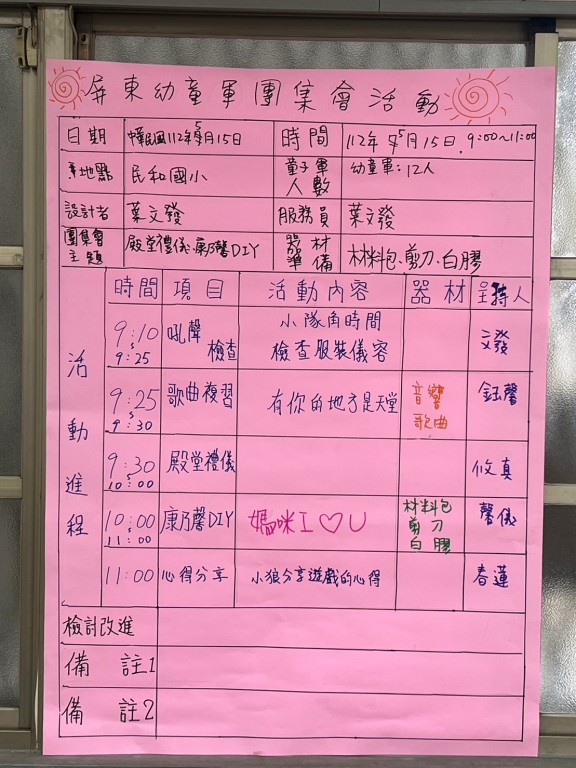 屏東幼童軍團集會活動
日期 中華民國112年5月15日 時間 112年5月15日.9:00~11:00
集地點 民和國小 童子軍人數 幼童軍:12人
設計者 葉文發 服務員 葉文發
團集會主題 殿堂禮儀.康乃馨DIY 器材準備 材料包.剪刀.白膠
活動進程
時間 項目 活動內容 器材 主持人
9:10~9:25 吼聲 檢查 小隊角時間 檢查服裝儀容 文發
9:25~9:30 歌曲複習 有你的地方是天堂 音響 歌曲 鈺馨
9:30~10:00 殿堂禮儀 攸真
10:00~11:00 康乃馨DIY 媽咪I♡U 材料包 剪刀 白膠 馨儀
11:00 心得分享 小狼分享遊戲的心得 春蓮
檢討改進
備註1
備註2